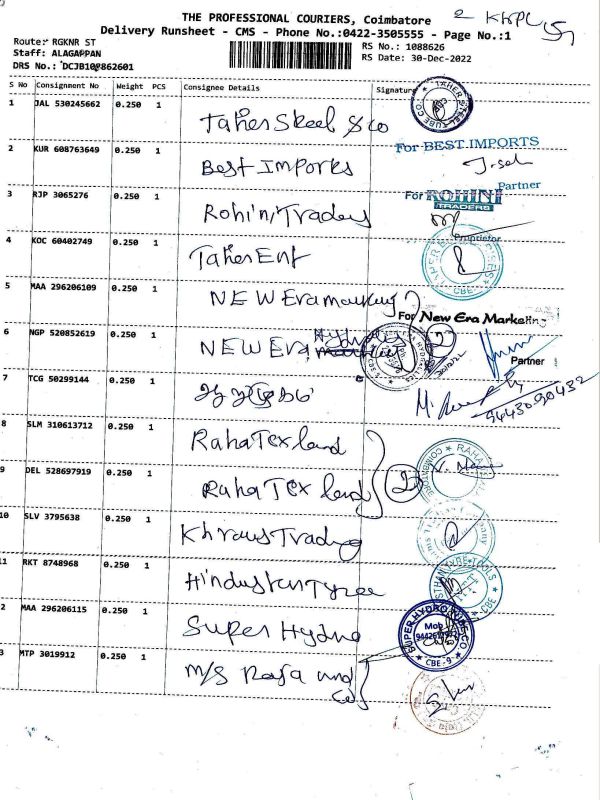 THE PROFESSIONAL COURIERS, Coimbatore
Delivery Runsheet - CMS - Phone No.:0422-3505555 - Page No.:1
2 KKPL
Route: RGKNR ST
Staff: ALAGAPPAN
DRS No.: DCJB10862601
RS No.: 1088626
RS Date: 30-Dec-2022
S No Consignment No Weight PCS Consignee Details Signature
1 JAL 530245662 0.250 1 Taher Steel & co
2 KUR 608763649 0.250 1 Best Imports
For BEST IMPORTS
Partner
3 RJP 3065276 0.250 1 Rohini Traders
For ROHINI
TRADERS
Proprietor
4 KOC 60402749 0.250 1 Taher Ent
CBE
5 MAA 296206109 0.250 1 NEW Era marketing
For New Era Marketing
6 NGP 520852619 0.250 1 NEW Era Hydraulics
2
30/12/22
Partner
7 TCG 50299144 0.250 1
9443090432
8 SLM 310613712 0.250 1 Raha Tex land
9 DEL 528697919 0.250 1 Raha Tex land
2
10 SLV 3795638 0.250 1 Khraus Trading
11 RKT 8748968 0.250 1 Hindustan Tyre
TYRE TOOLS
CBE
2 MAA 296206115 0.250 1 Super Hydro
SUPER HYDRO TUBE CO.
Mob
CBE - 9
3 MTP 3019912 0.250 1 M/s Raja and
co